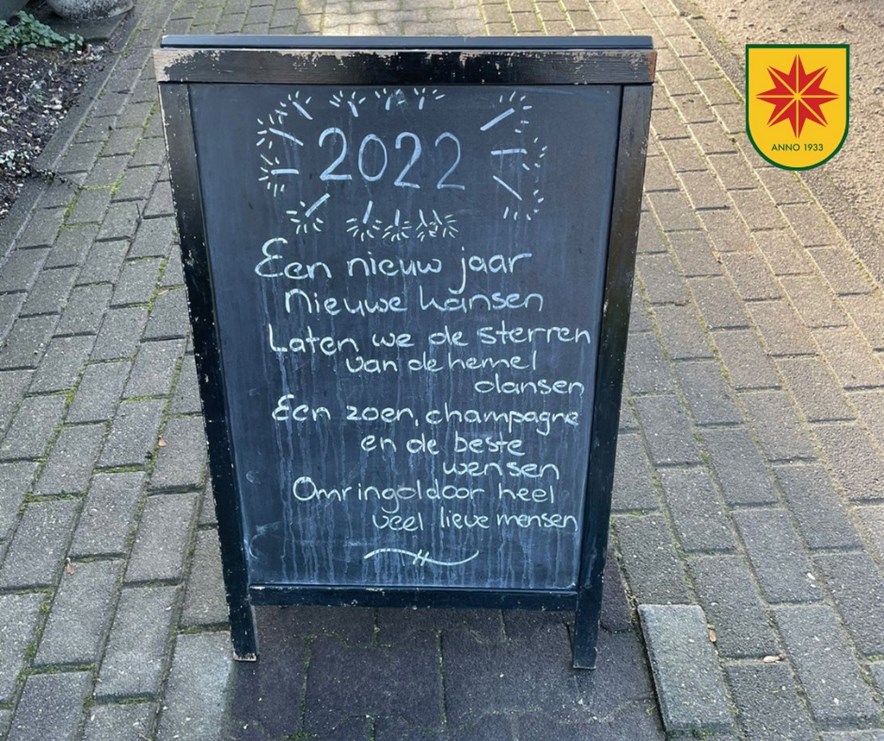 2022
Een nieuw jaar
Nieuwe kansen
Laten we de sterren
van de hemel
dansen
Een zoen, champagne
en de beste
wensen
Omringd door heel
veel lieve mensen
ANNO 1933